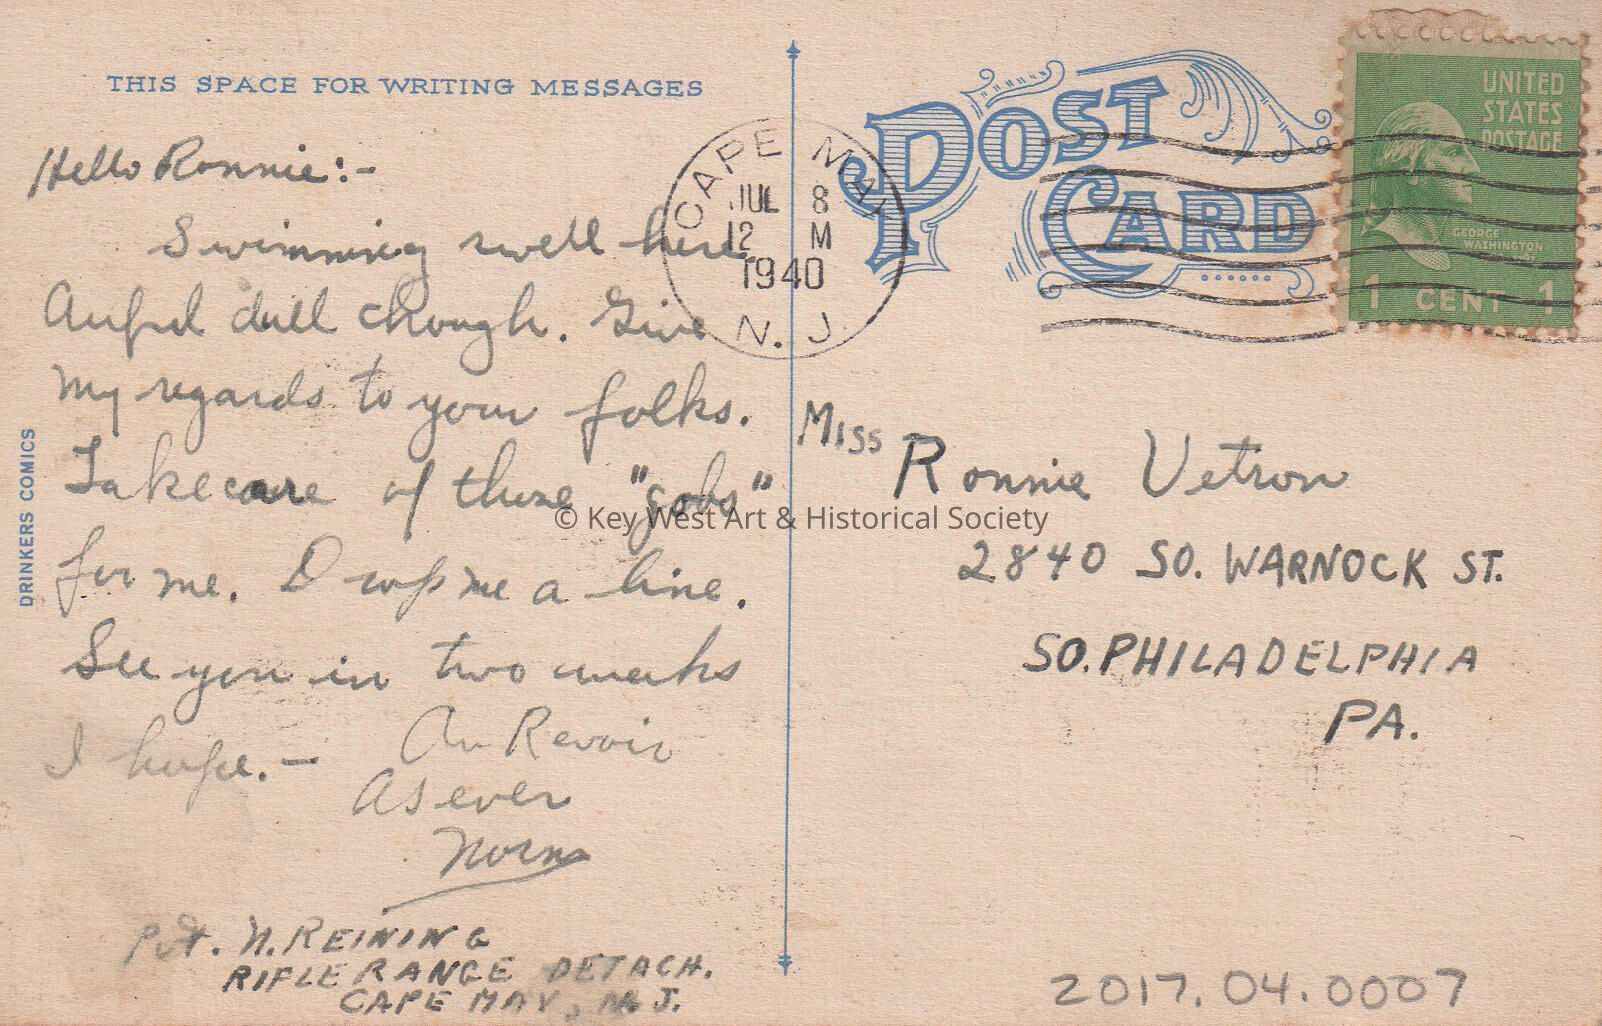 THIS SPACE FOR WRITING MESSAGES
Hello Ronnie:-
Swimming swell here.
Awful dull though. Give
my regards to your folks.
Take care of those "gobs"
for me. Drop me a line.
See you in two weeks
I hope.- Au Revoir
As ever
Norm
Pvt. N. REINING
RIFLE RANGE DETACH.
CAPE MAY, N.J.
DRINKERS COMICS
CAPE MAY
JUL 8
12 M
1940
N. J.
POST
CARD
UNITED
STATES
POSTAGE
GEORGE
WASHINGTON
1 CENT 1
Miss Ronnie Vetron
2840 SO. WARNOCK ST.
SO. PHILADELPHIA
PA.
2017.04.0007
© Key West Art & Historical Society